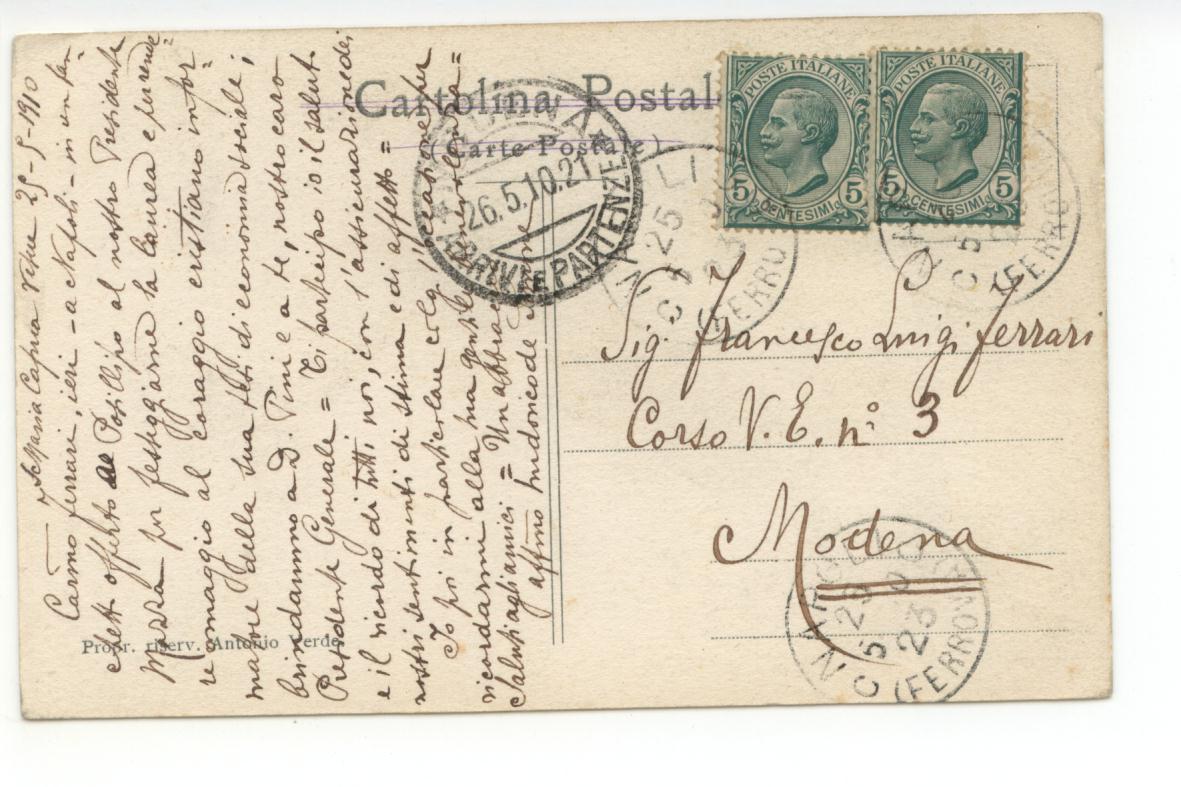 Cartolina Postale
(Carte Postale)
POSTE ITALIANE
5 CENTESIMI 5
POSTE ITALIANE
5 CENTESIMI 5
MODENA
26.5.10.21
ARRIVI E PARTENZE
NAPOLI
25 5
23
(FERROVIA)
NAPOLI
25 5
(FERROVIA)
NAPOLI
23
(FERROVIA)
Sig. Francesco Luigi Ferrari
Corso V. E. n° 3
Modena
S. Maria Capua Vetere 25-5-1910
Carmo Ferrari, ieri - a Napoli - in un ban=
chetto offerto a Posillipo al nostro Presidente
Mazza per festeggiarne la laurea e per rende=
re omaggio al coraggio cristiano infor=
matore della sua tesi di economia sociale,
brindammo a D. Pini e a te, nostro caro
Presidente Generale = Ti partecipo io il saluto
e il ricordo di tutti noi, con l'assicurazione dei
nostri sentimenti di stima e di affetto =
Io poi in particolare colgo l'occasione per
ricordarmi alla tua gentile
Saluti agli amici = Un abbraccio
affmo Ludovico de
Propr. riserv. Antonio Verde